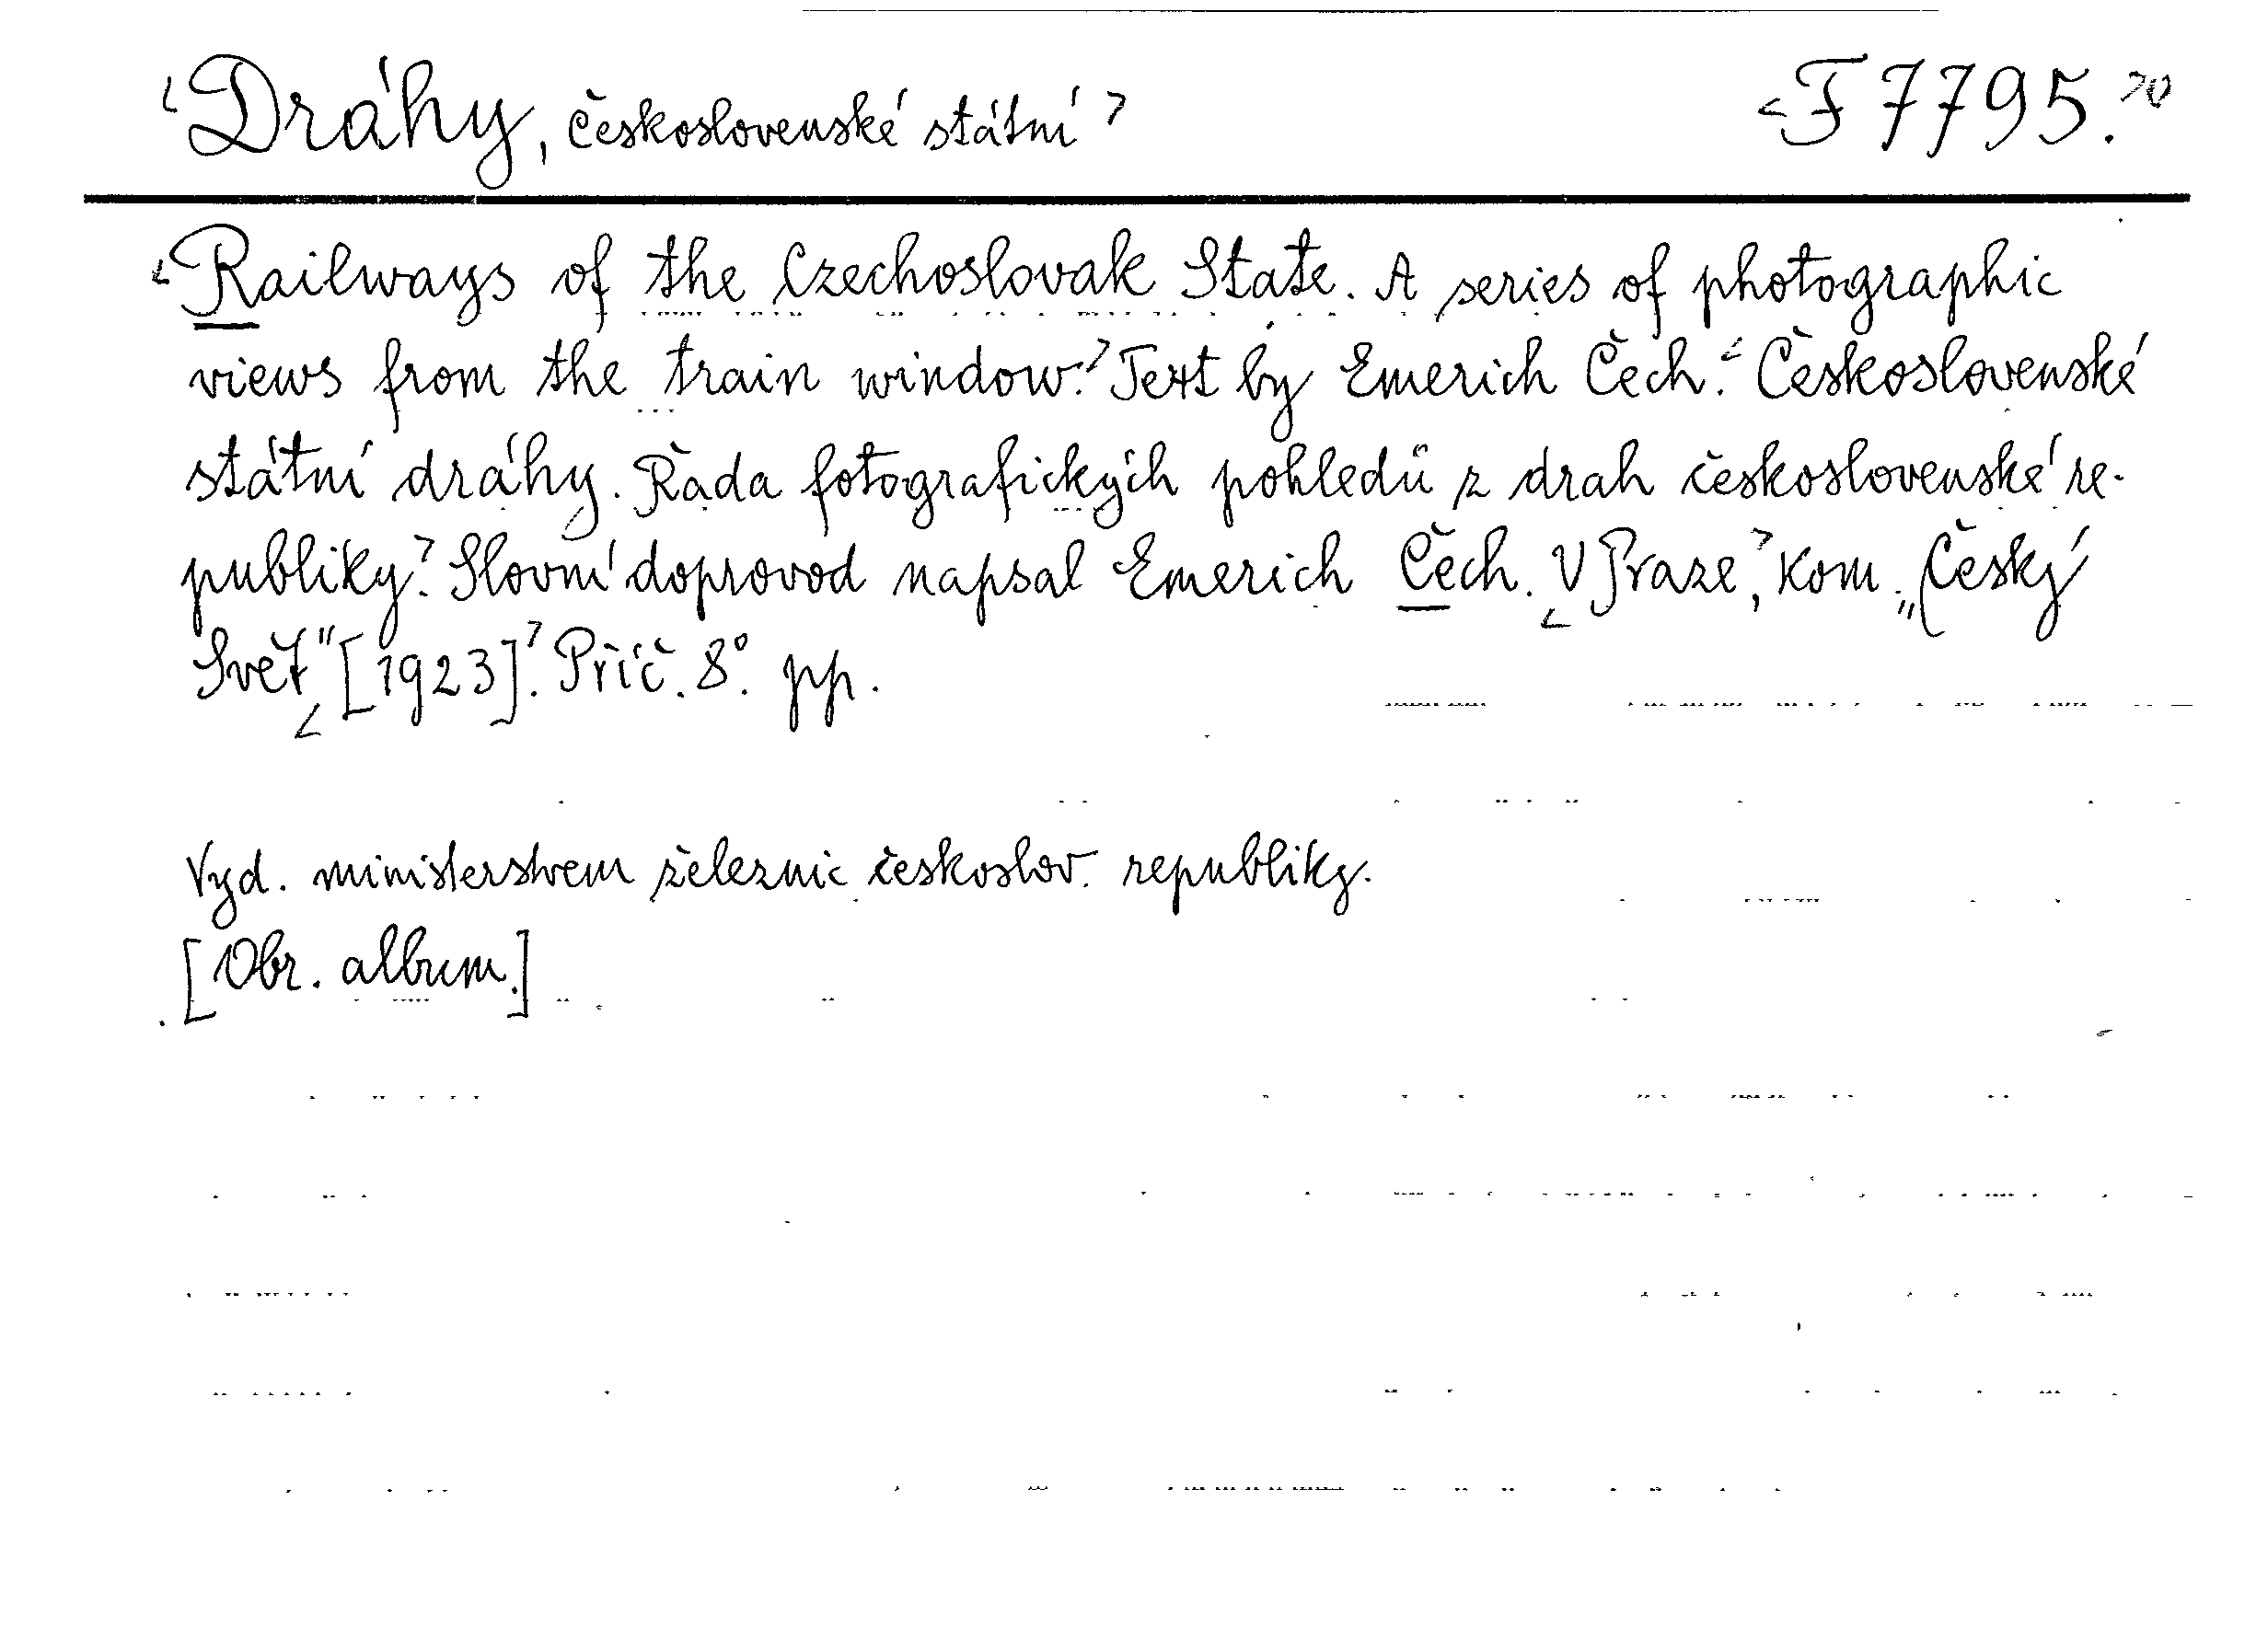 Dráhy, československé státní
F 7795.
Railways of the Czechoslovak State. A series of photographic
views from the train window. Text by Emerich Čech. Československé
státní dráhy. Řada fotografických pohledů z drah československé re-
publiky. Slovní doprovod napsal Emerich Čech. V Praze, kom. „Český
Svět" [1923]. Příč. 8°. pp.
Vyd. ministerstvem železnic českoslov. republiky.
[Obr. album.]